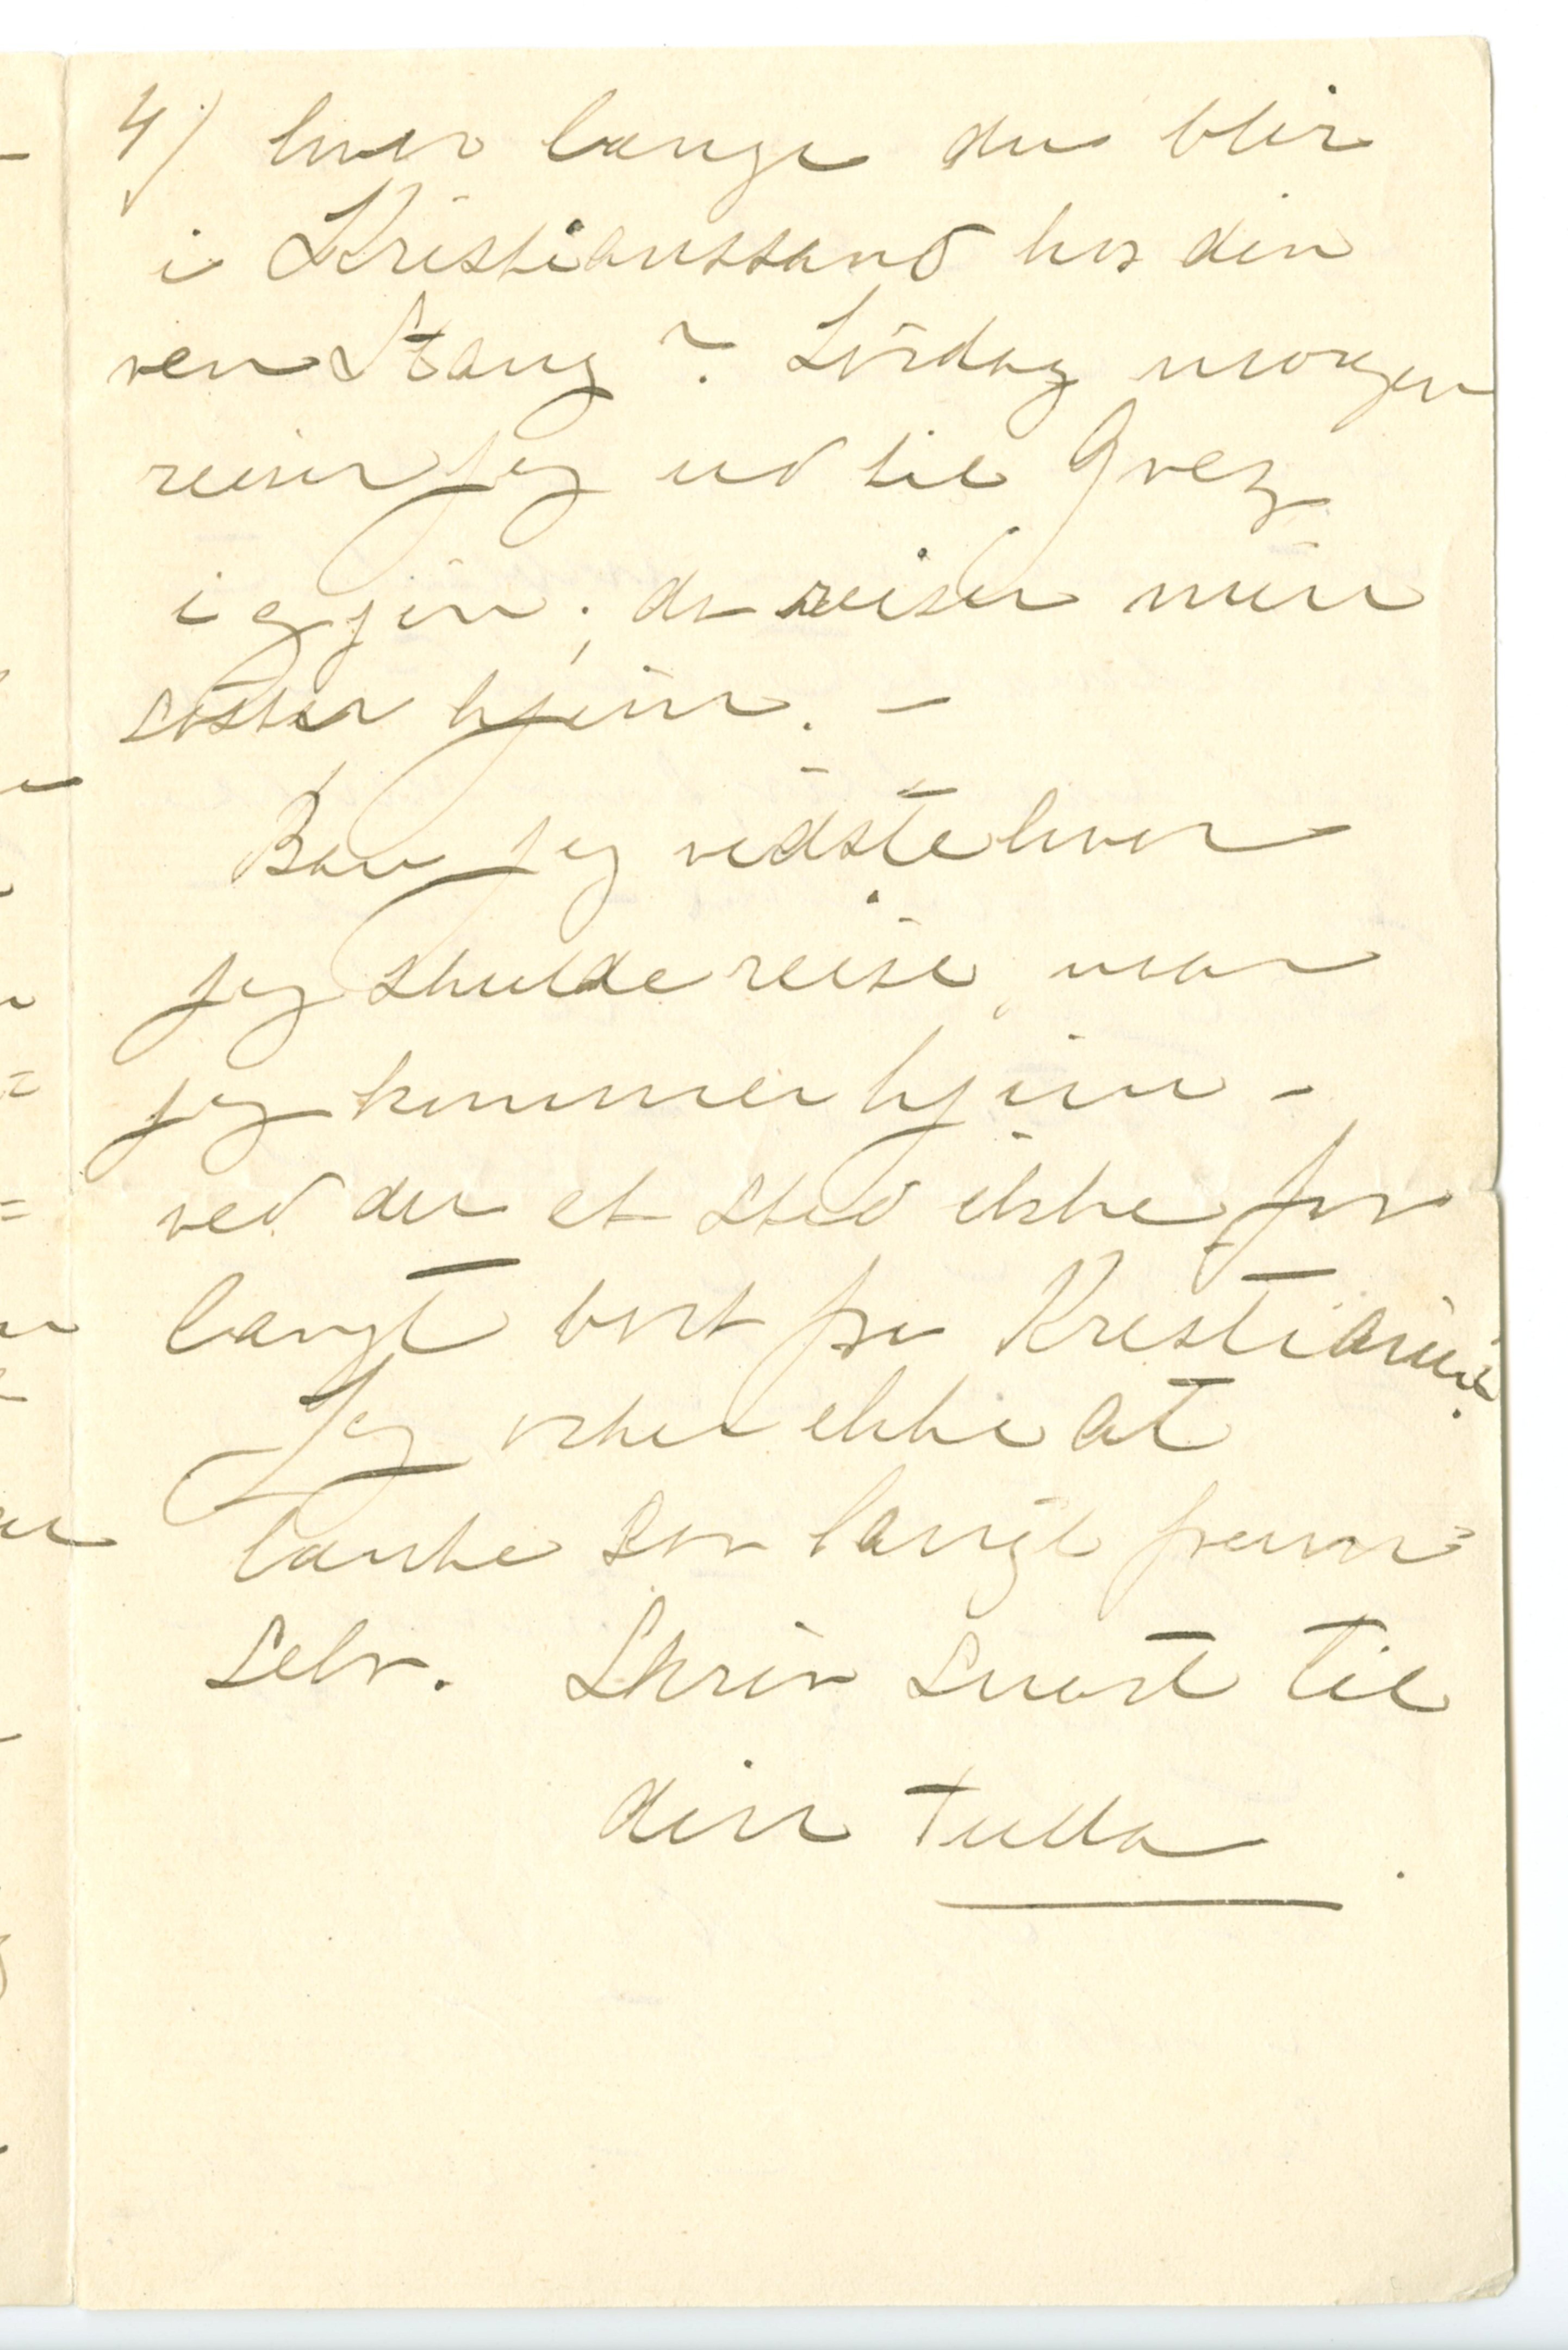 4) hvor længe du blir
i Kristianssand hos din
ven Stang? Lördag morgen
reiser jeg ud til Grez
igjen; da reiser min
söster hjem. –
Bare jeg vidste hvor
jeg skulde reise, naar
jeg kommer hjem –
ved du et sted ikke for
langt bort fra Kristiania.
Jeg orker ikke at
tænke saa langt frem=
selv. Skriv snart til
din Tulla.